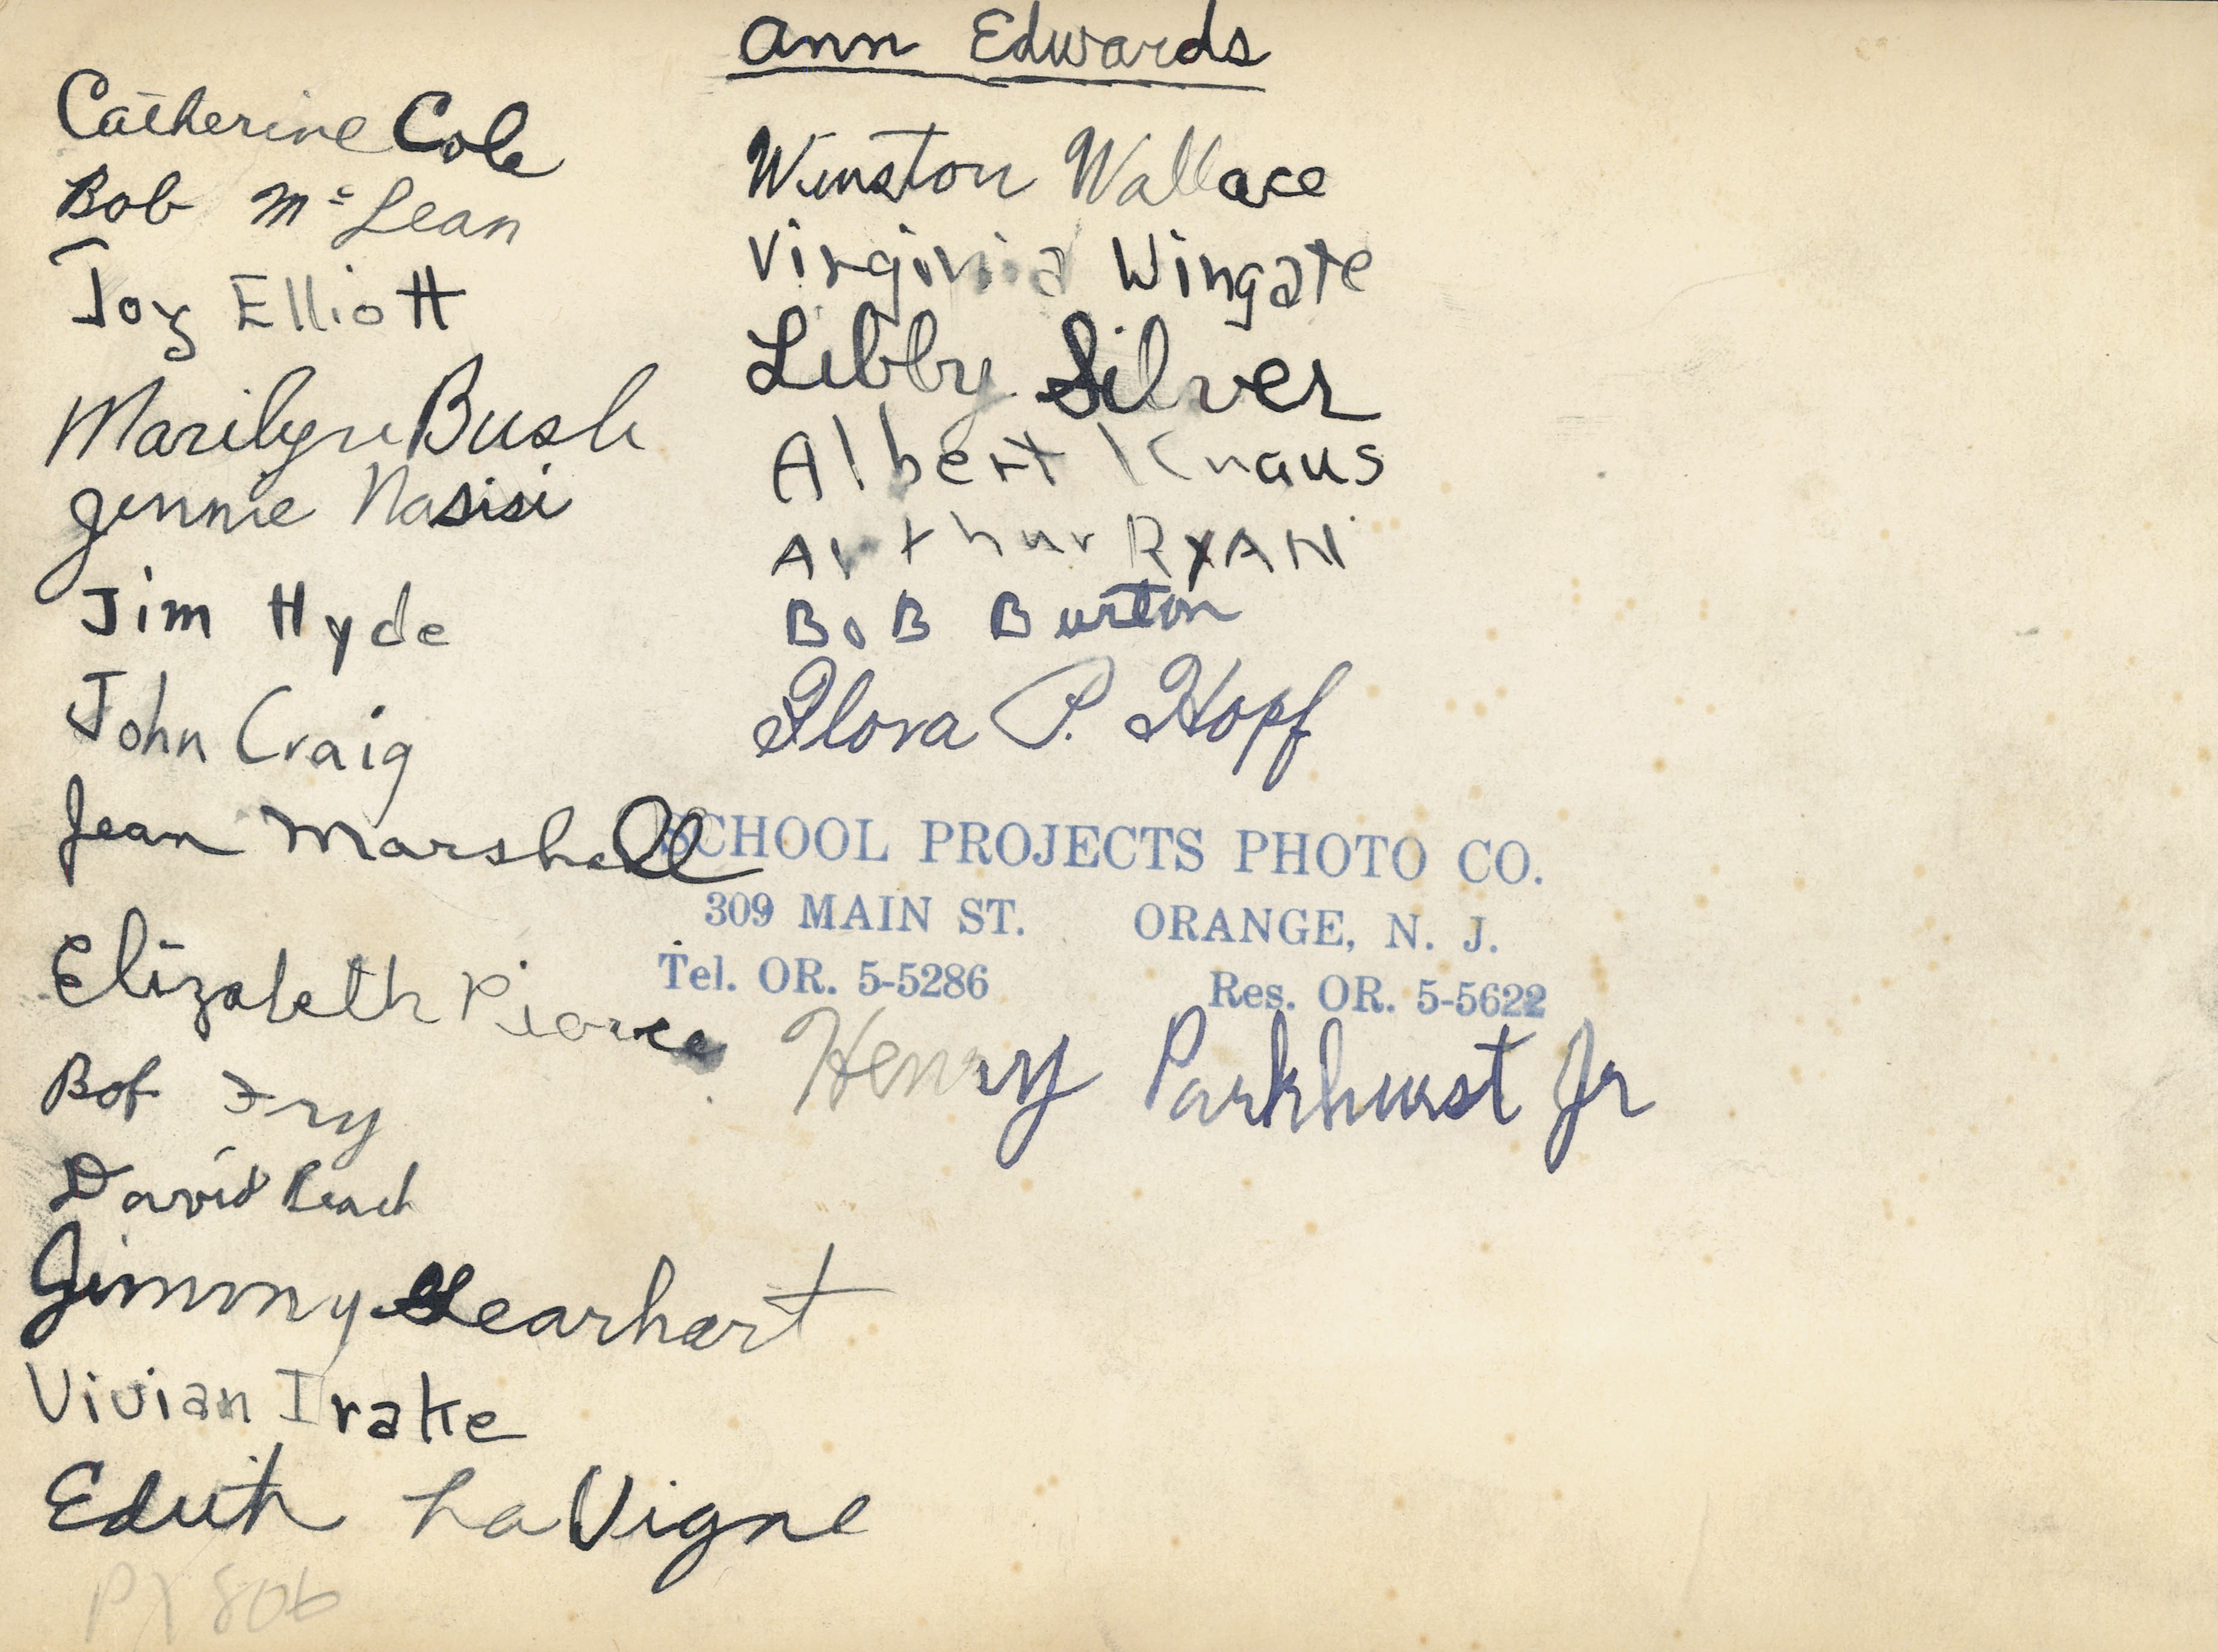 Ann Edwards
Catherine Cole
Bob McLean
Joy Elliott
Marilyn Bush
Jennie Nasisi
Jim Hyde
John Craig
Jean Marshall
Elizabeth Pierce
Bob Fry
David
Jimmy Gearhart
Vivian Drake
Edith LaVigne
PX 806
Winston Wallace
Virginia Wingate
Libby Silver
Albert Knaus
Arthur RYAN
BoB Burton
Flora P. Hopf
SCHOOL PROJECTS PHOTO CO.
309 MAIN ST. ORANGE, N. J.
Tel. OR. 5-5286 Res. OR. 5-5622
Henry Parkhurst Jr